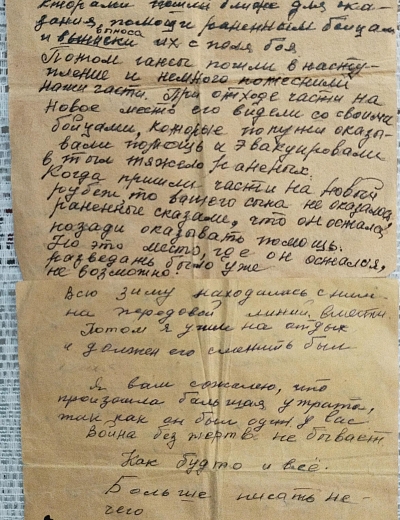 которыми пошли ближе для ока-
зания помощи раненным бойцам
и выноса их с поля боя
Потом гансы пошли в насту-
пление и немного потеснили
наши части. При отходе части на
новое место его видели со своими
бойцами, которые попутно оказы-
вали помощь и эвакуировали
в тыл тяжело раненых.
Когда пришли части на новый
рубеж то вашего сына не оказалось,
раненные сказали, что он остался
позади оказывать помощь.
Но это место, где он остался,
разведать было уже
не возможно.
Всю зиму находились с ним
на передовой линии вместе
Потом я ушел на отдых
и должен его сменить был
Я вам сожалею, что
произошла большая утрата,
так как он был один у вас
Война без жертв не бывает
Как будто и всё.
Больше писать не-
чего